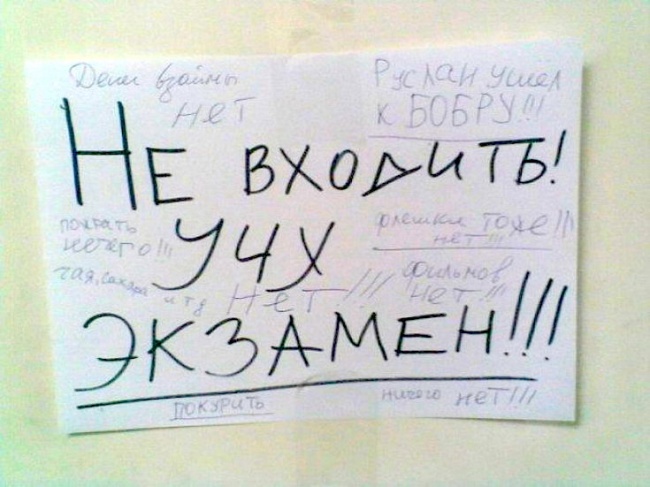 Деньг взаймы
нет
Руслан ушел
к БОБРУ!!!
НЕ ВХОДИТЬ!
пожрать
нечего!!!
флешки тоже!!!
нет!!!
УЧУ
чая, сахара
и тд Нет!!!
фильмов
нет!!!
ЭКЗАМЕН!!!
ПОКУРИТЬ
ничего нет!!!